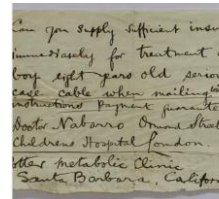 Can you supply sufficient insu
immediately for treatment
boy eight years old serio
case cable when mailing
instructions payment guarante
Doctor Nabarro Ormond Street
Childrens Hospital London.
Metabolic Clinic
Santa Barbara, Californ